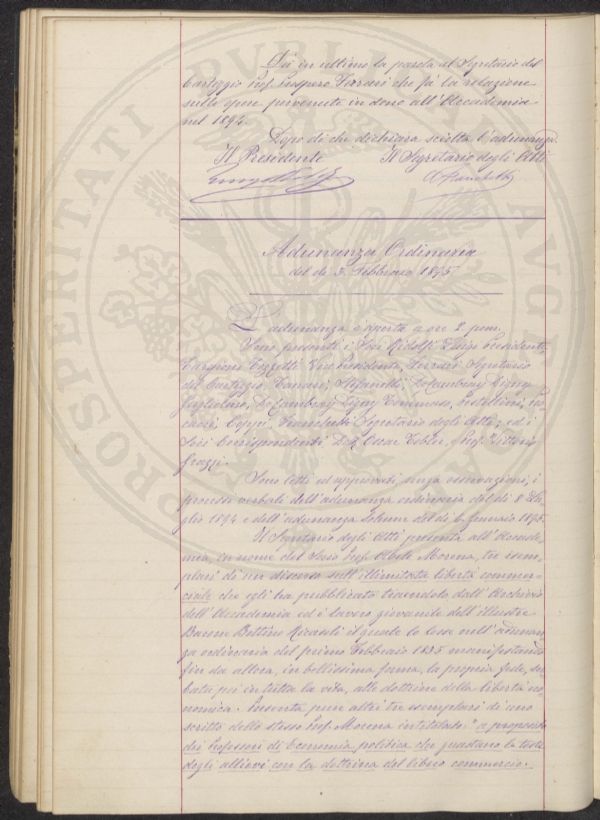 Dà in ultimo la parola al Segretario del
Carteggio Prof. Prospero Ferrari che fa la relazione
sulle opere pervenute in dono all'Accademia
nel 1894.
Dopo di che dichiara sciolta l'adunanza.
Il Presidente Il Segretario degli Atti
Adunanza Ordinaria
del dì 3. Febbraio 1895
L'adunanza è aperta a ore 2 pom.
Sono presenti i Soci Ridolfi Luigi Presidente,
Targioni Tozzetti Vice Presidente, Ferrari Segretario
del Carteggio, Tanari, Stefanelli, De Cambray Digny
Guglielmo, De Cambray Digny Tommaso,
Coppi, Franchetti Segretario degli Atti; ed i
Soci Corrispondenti D.r Oscar Tobler, Prof. Vittorio
Sono letti ed approvati, senza osservazioni, i
processi verbali dell'adunanza ordinaria del dì 8 Lu-
glio 1894 e dell'adunanza solenne del dì 6. Gennaio 1895.
Il Segretario degli Atti presenta all'Accade-
mia, in nome del Socio Prof. Abele Morena, tre esem-
plari di un discorso sull'illimitata libertà commer-
ciale che egli ha pubblicato traendolo dall'Archivio
dell'Accademia ed è lavoro giovanile dell'illustre
Barone Bettino Ricasoli il quale lo lesse nell'adunan-
za ordinaria del primo Febbraio 1835 manifestando
fin da allora, in bellissima forma, la propria fede, ser-
bata poi in tutta la vita, alle dottrine della libertà eco-
nomica. Presenta pure altri tre esemplari di uno
scritto dello stesso Prof. Morena intitolato: "a proposito
dei Professori di Economia politica che guastano le teste
degli allievi con la dottrina del libero commercio.